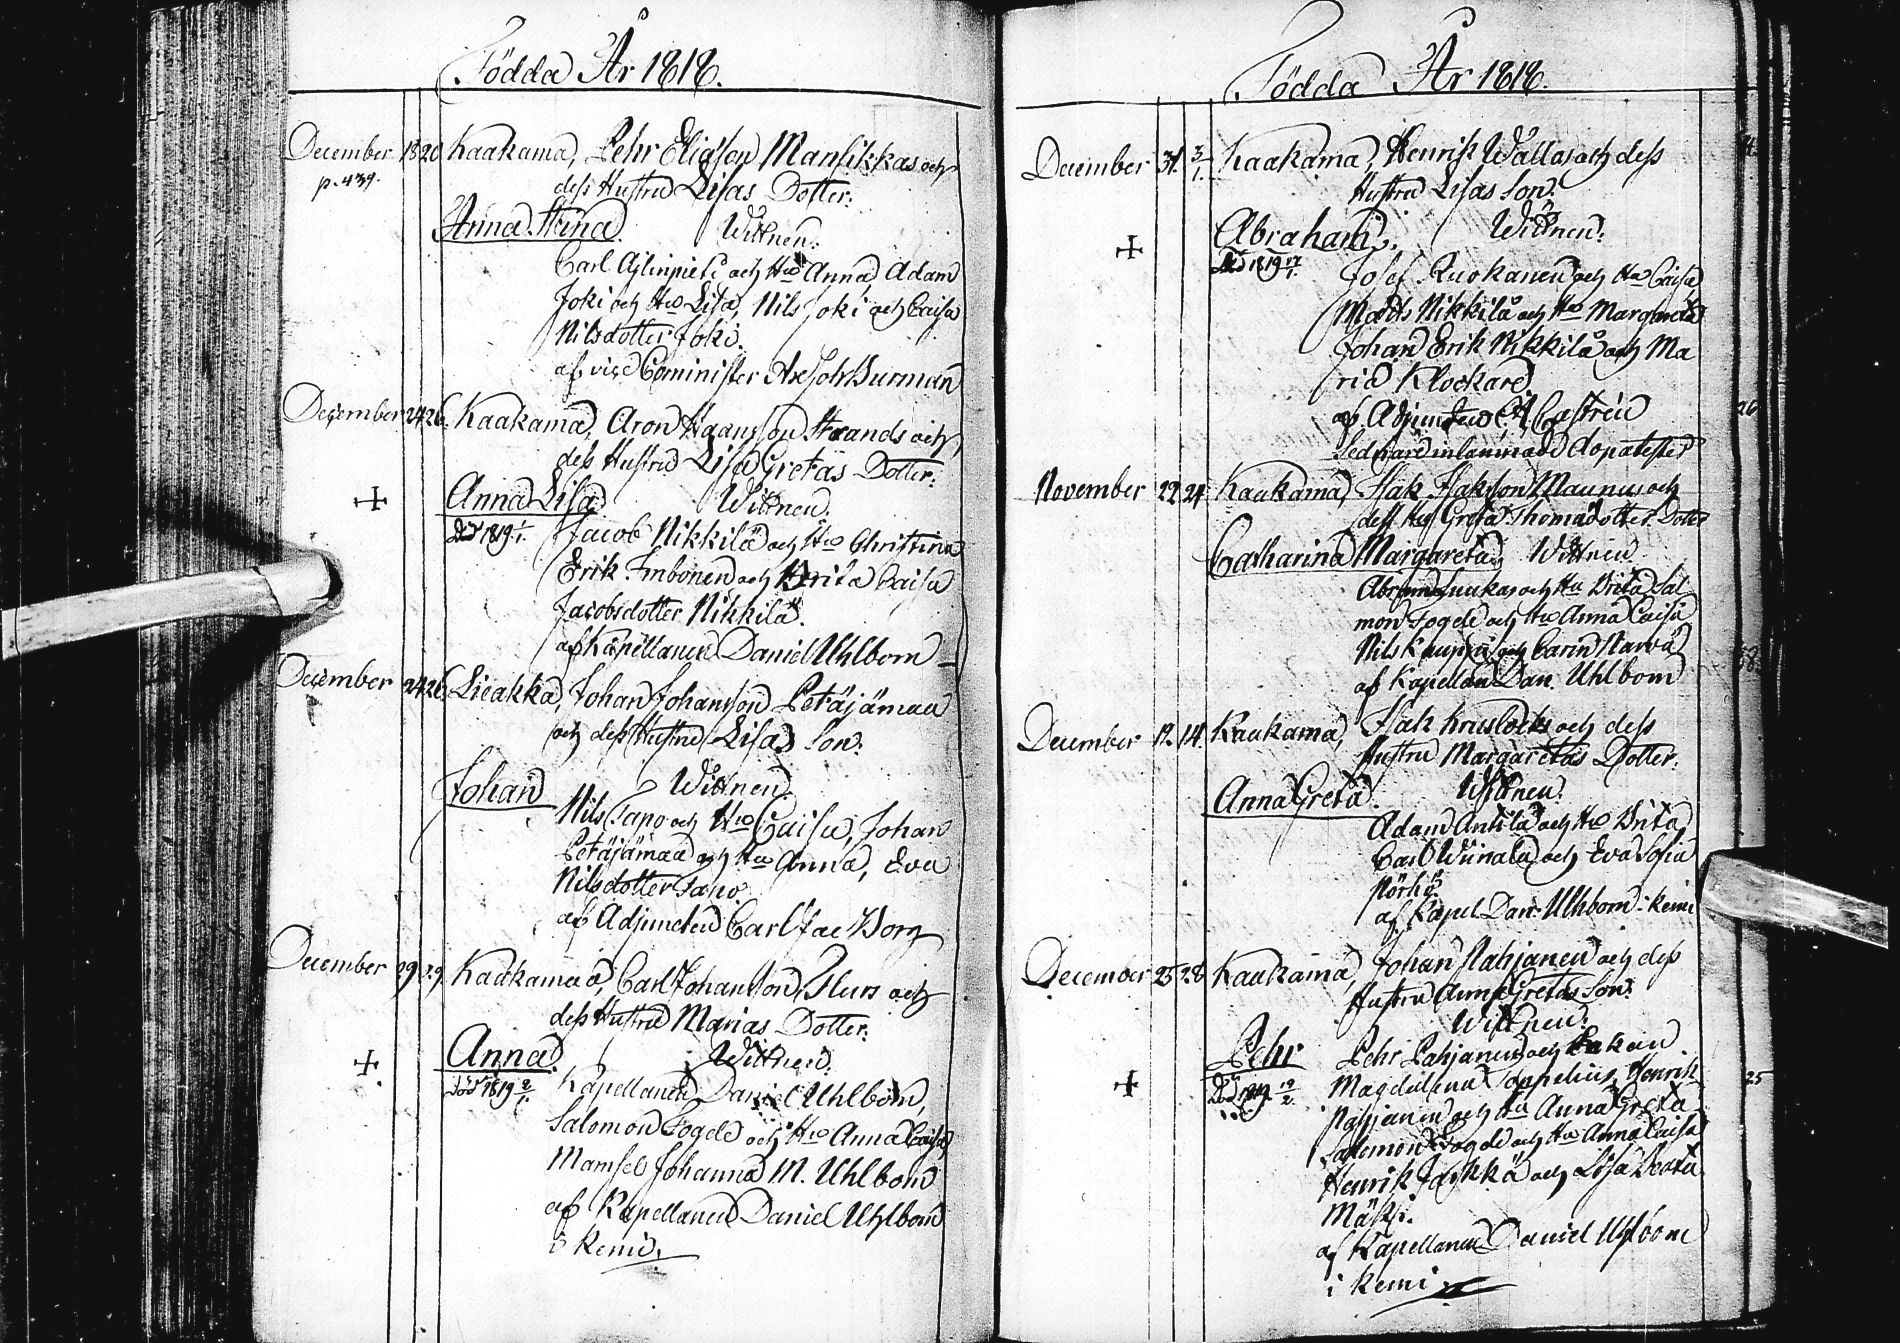 Födda År 1818.
December 18 20 Kaakama, Pehr Eliasson Mansikkas och
p. 439. dess Hustru Lisas Dotter.
Anna Stina Wittnen:
Carl och Hu Anna, Adam
Joki och Hu Lisa, Nils Joki och Caisa
Nilsdotter Joki.
af vice Comminister Burman
December 24 26. Kaakama, Aron Strands och
dess Hustru Lisa Gretas Dotter.
+ Anna Lisa Wittnen.
Död 1819 Jacob Nikkilä och Hu Christina
Erik Imbonen och Brita Caisa
Jacobsdotter Nikkilä.
af Kapellanen Daniel Uhlbom
December 24 26. Lieakka, Johan Johansson Petäjämaa
och dess Hustru Lisas Son.
Johan Wittnen.
Nils Tapo och Hu Caisa, Johan
Petäjämaa och Hu Anna, Eva
Nilsdotter Tapo.
af Adjuncten Carl Jac Borg
December 29 29. Kaakama, Carl Johansson och
dess Hustru Marias Dotter.
+ Anna. Wittnen.
Död 1819 2/1. Kapellanen Daniel Uhlbom,
Salomon Fogde och Hu Anna Caisa
Mamsel Johanna M. Uhlbom
af Kapellanen Daniel Uhlbom
i Kemi.
Födda År 1818.
December 31. 3/1. Kaakama, Henrik Wallas och dess
Hustru Lisas Son.
+ Abraham. Wittnen:
Död 1819 17/1. Josef Ruokanen och Hu Caisa
Matts Nikkilä och Hu Margareta
Johan Erik Nikkilä och Ma
ria Klockare
af Adjuncten Castrén
Sednare inlämnade dopattester
November 22 24 Kaakama, Isak Isaksson Maunus och
dess Hust Greta Thomasdotters Dotter
Catharina Margareta. Wittnen
Abram Luukas och Hu Brita Sal
mon Fogde och Hu Anna Caisa
Nils Kauppi och Carin
af Kapellan Dan. Uhlbom
December 12. 14. Kaakama, Isak och dess
Hustru Margaretas Dotter.
Anna Greta. Wittnen.
Adam Anttila och Hu Brita
Carl och Eva Sofia
Nörhi
af Kapel Dan Uhlbom i Kemi
December 25 28 Kaakama, Johan Pahjanen och dess
Hustru Anna Gretas Son.
Wittnen.
Pehr Pehr Pahjanen och Enkan
+ Magdalena Toppelius, Henrik
Död 1819 19/2. Pahjanen och Hu Anna Greta
Salomon Fogde och Hu Anna Caisa
Henrik Jaykkä och Lisa Beata
Mäki.
af Kapellanen Daniel Uhlbom
i Kemi